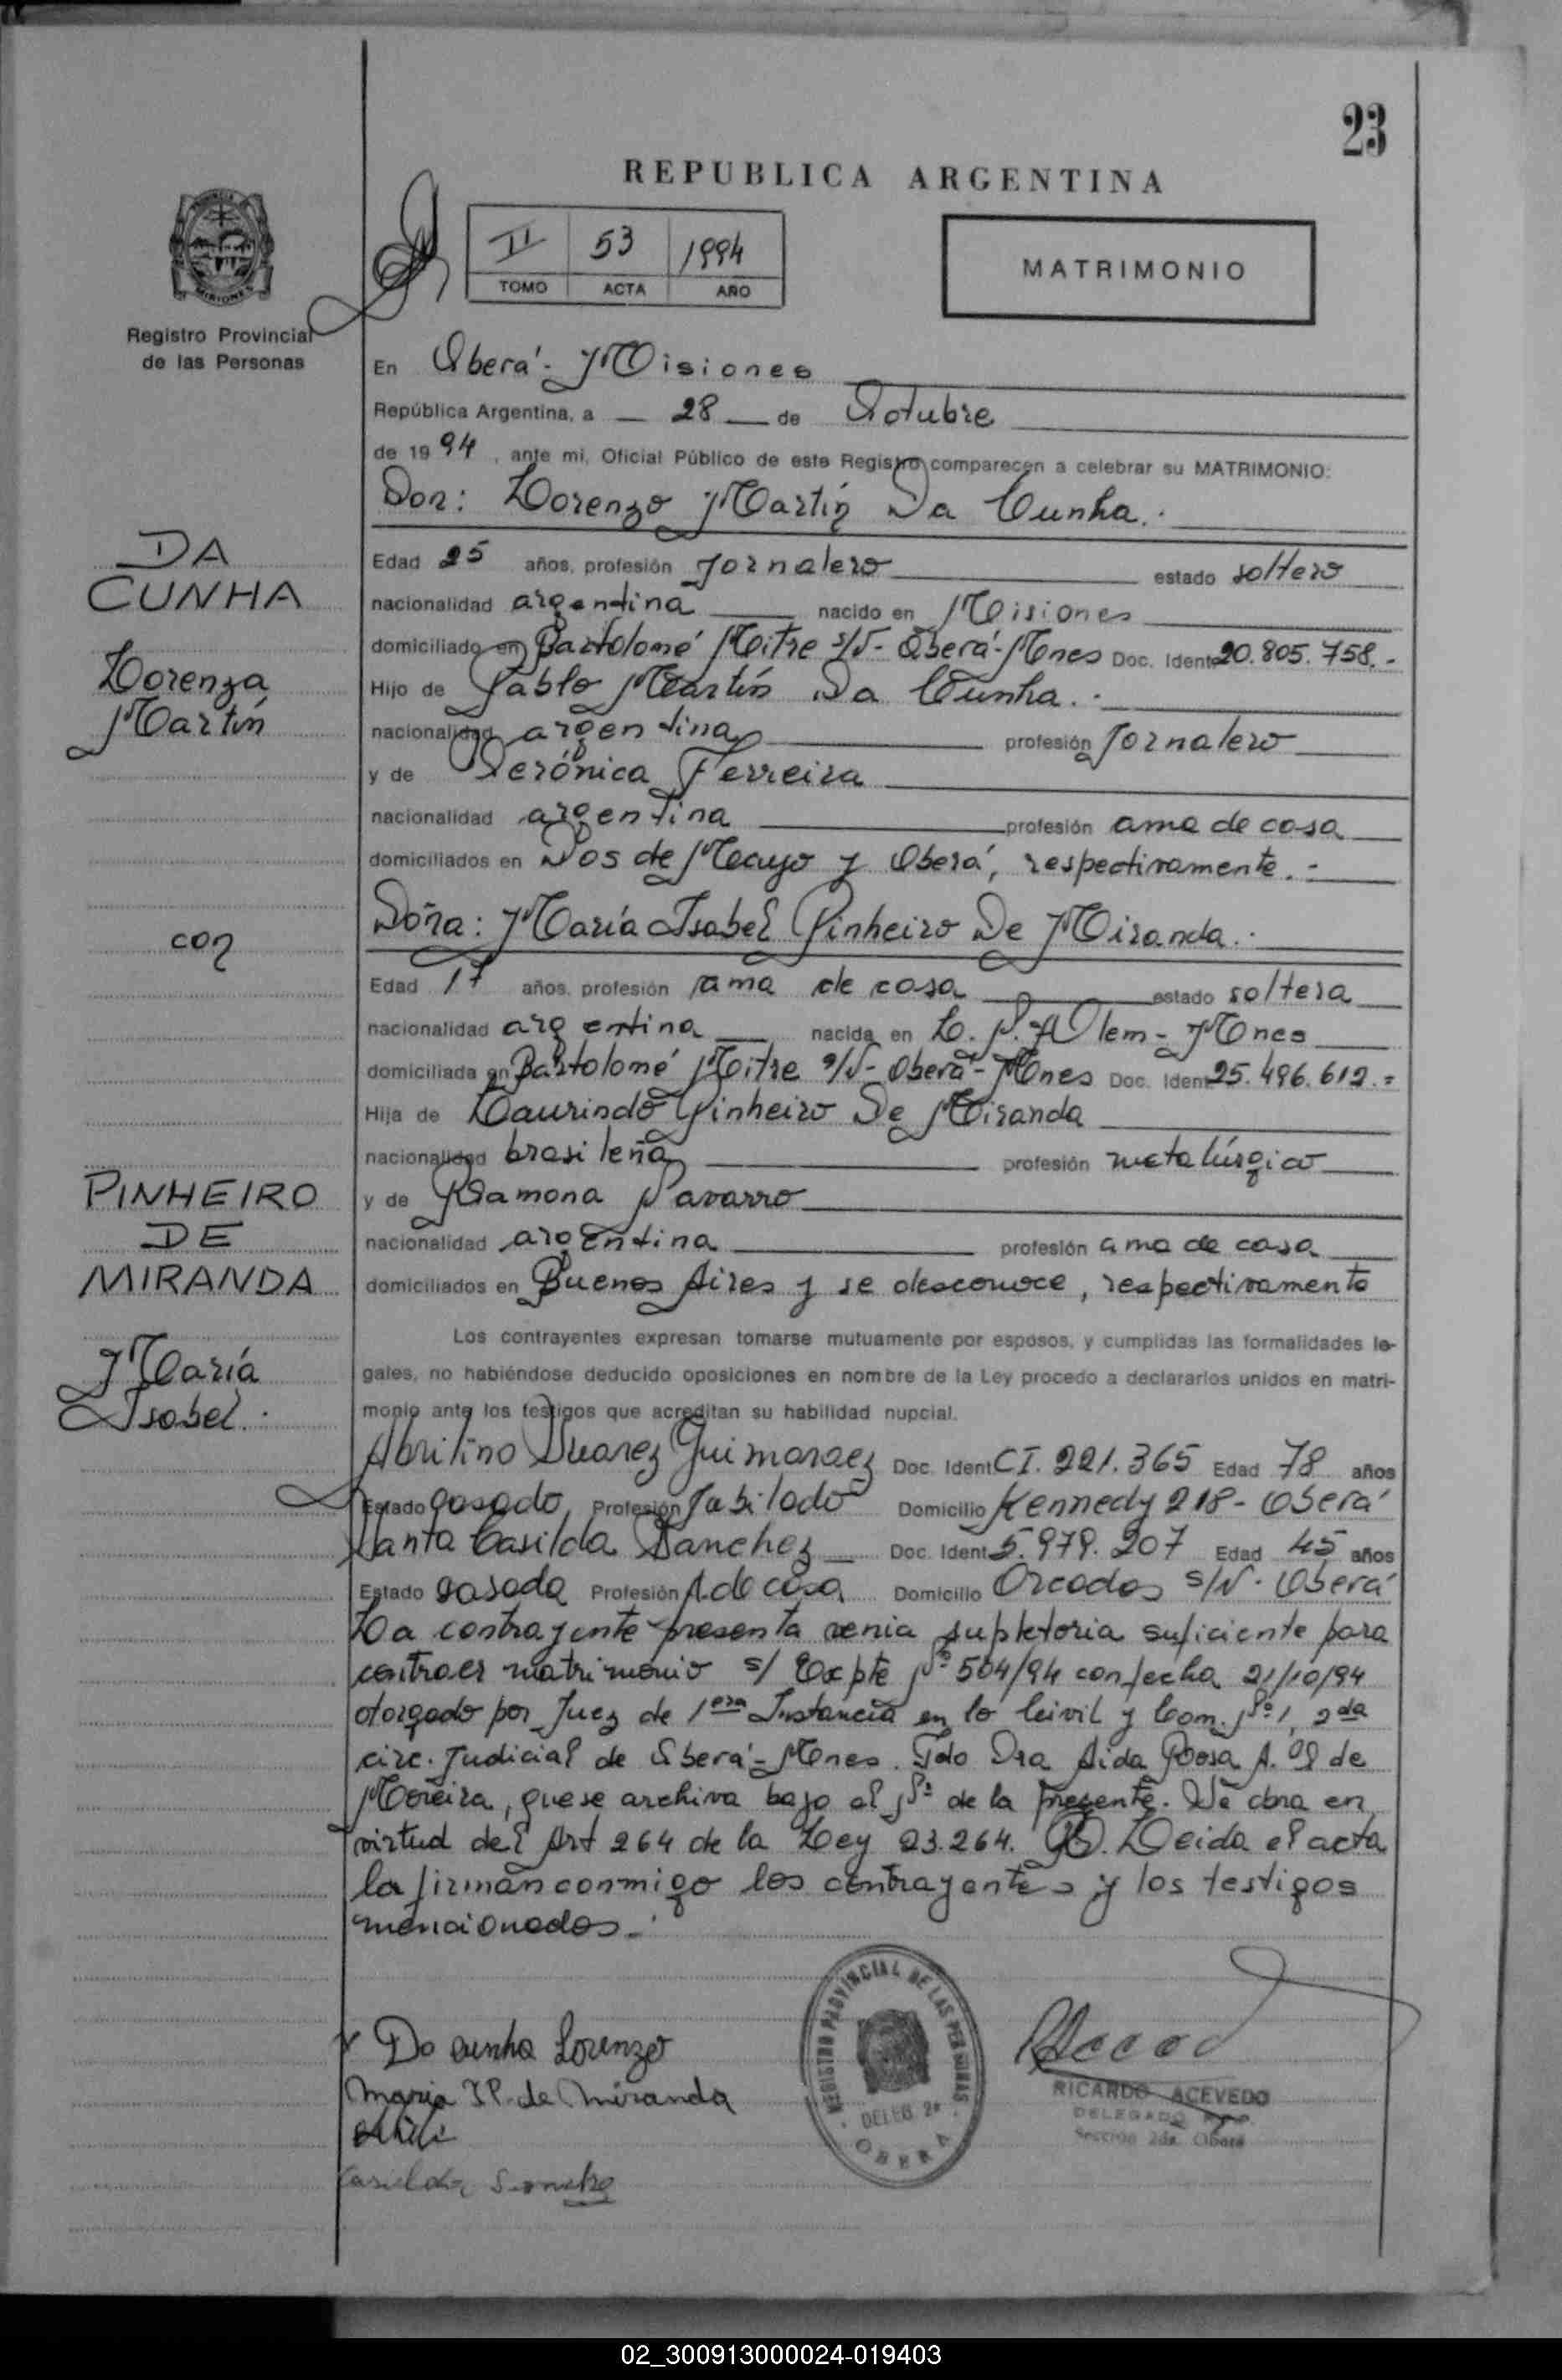 23
REPUBLICA ARGENTINA
II 53 1994
TOMO ACTA AÑO
MATRIMONIO
Registro Provincial
de las Personas
En Oberá - Misiones
República Argentina, a 28 de Octubre
de 1994, ante mi, Oficial Público de este Registro comparecen a celebrar su MATRIMONIO:
Don: Lorenzo Martín Da Cunha.
Edad 25 años, profesión Jornalero estado soltero
nacionalidad argentina nacido en Misiones
domiciliado en Bartolomé Mitre s/N - Oberá - Mnes Doc. Ident 20.805.758.-
Hijo de Pablo Martín Da Cunha.
nacionalidad argentina profesión Jornalero
y de Verónica Ferreira
nacionalidad argentina profesión ama de casa
domiciliados en Dos de Mayo y Oberá, respectivamente.
Doña: María Isabel Pinheiro De Miranda.
Edad 17 años, profesión ama de casa estado soltera
nacionalidad argentina nacida en L. N. Alem - Mnes
domiciliada en Bartolomé Mitre s/N - Oberá - Mnes Doc. Ident 25.496.612.=
Hija de Laurindo Pinheiro De Miranda
nacionalidad brasileña profesión metalúrgico
y de Ramona Navarro
nacionalidad argentina profesión ama de casa
domiciliados en Buenos Aires y se desconoce, respectivamente
Los contrayentes expresan tomarse mutuamente por esposos, y cumplidas las formalidades le-
gales, no habiéndose deducido oposiciones en nombre de la Ley procedo a declararlos unidos en matri-
monio ante los testigos que acreditan su habilidad nupcial.
Abrilino Suarez Guimaraez Doc. Ident CI. 221.365 Edad 78 años
Estado casado Profesión Jubilado Domicilio Kennedy 218 - Oberá
Santa Casilda Sanchez Doc. Ident 5.979.207 Edad 45 años
Estado casada Profesión A.de casa Domicilio Orcadas s/N - Oberá
La contrayente presenta venia supletoria suficiente para
contraer matrimonio s/ Expte Nº 504/94 con fecha 21/10/94
otorgado por Juez de 1era Instancia en lo Civil y Com. Nº 1, 2da
circ. Judicial de Oberá - Mnes. Fdo Dra Aida Rosa A. de
Moreira, que se archiva bajo el Nº de la presente. Se obra en
virtud del Art 264 de la Ley 23.264. Leida el acta
la firman conmigo los contrayentes y los testigos
mencionados.
DA
CUNHA
Lorenzo
Martín
con
PINHEIRO
DE
MIRANDA
María
Isabel.
Da cunha Lorenzo
Maria I P. de Miranda
Casilda Sanchez
REGISTRO PROVINCIAL DE LAS PERSONAS
DELEG. 2ª
OBERA
RICARDO ACEVEDO
DELEGADO
Sección 2da. Oberá
02_300913000024-019403